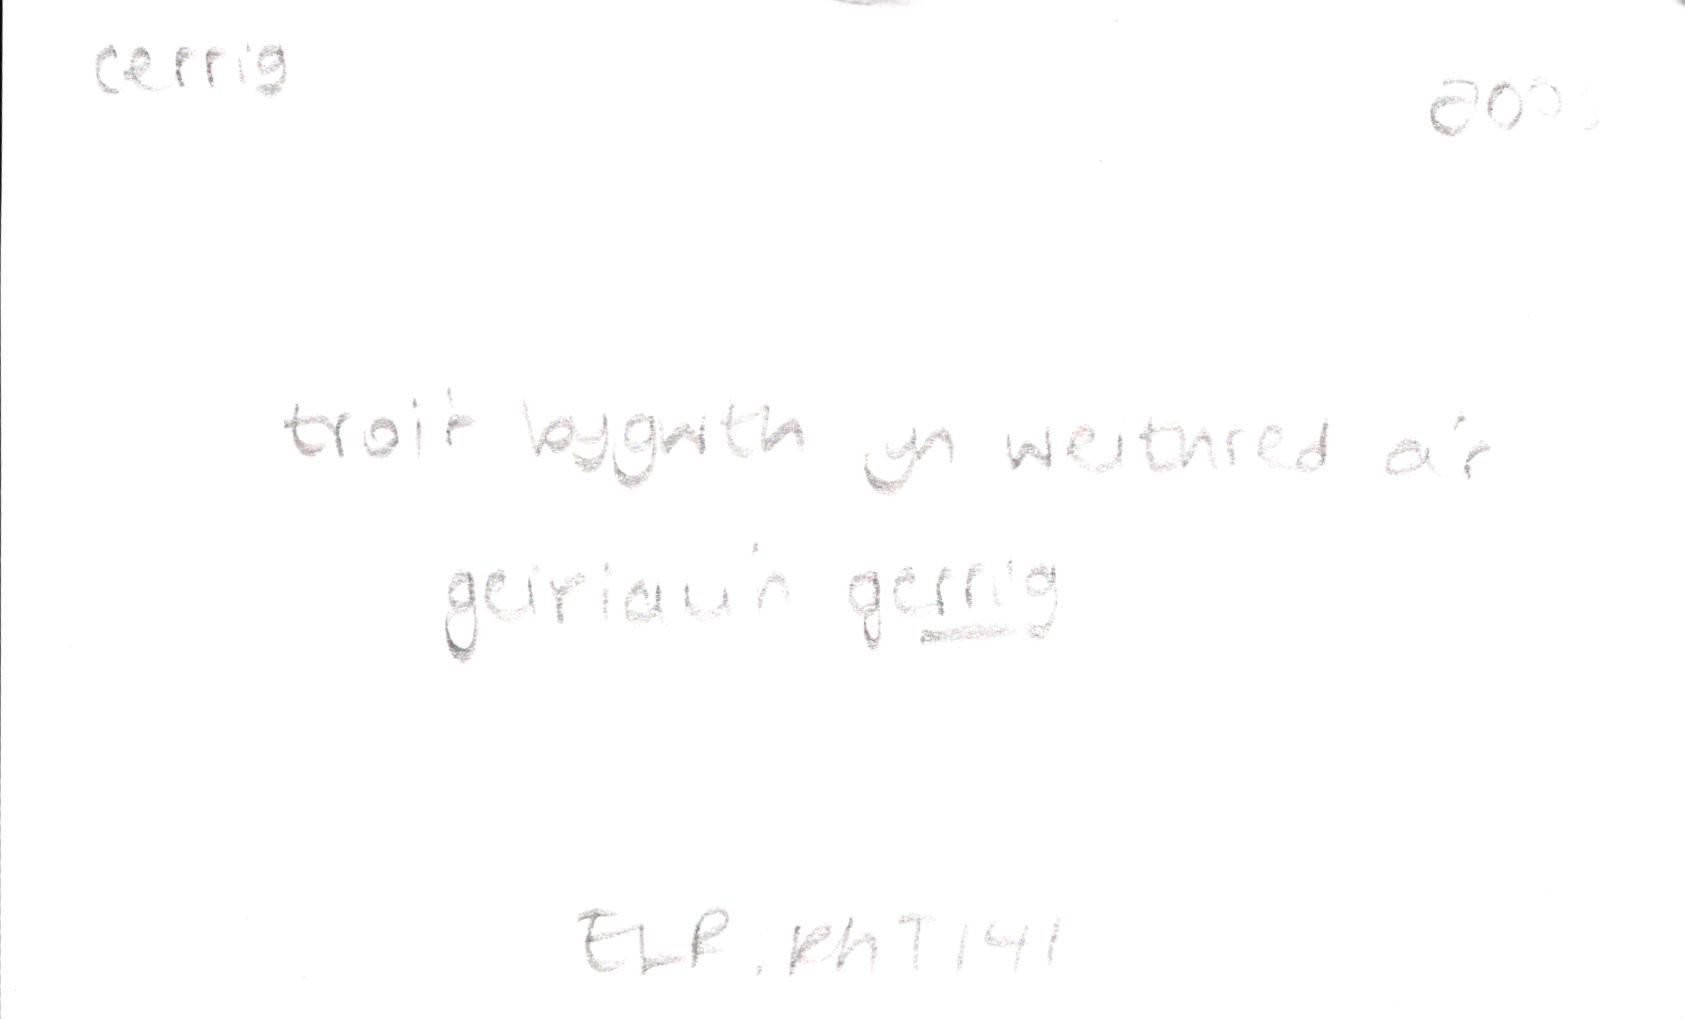 cerrig
troit bygwth yn weithred a'r
geiriau'n gerrig
ELR. RhT 141